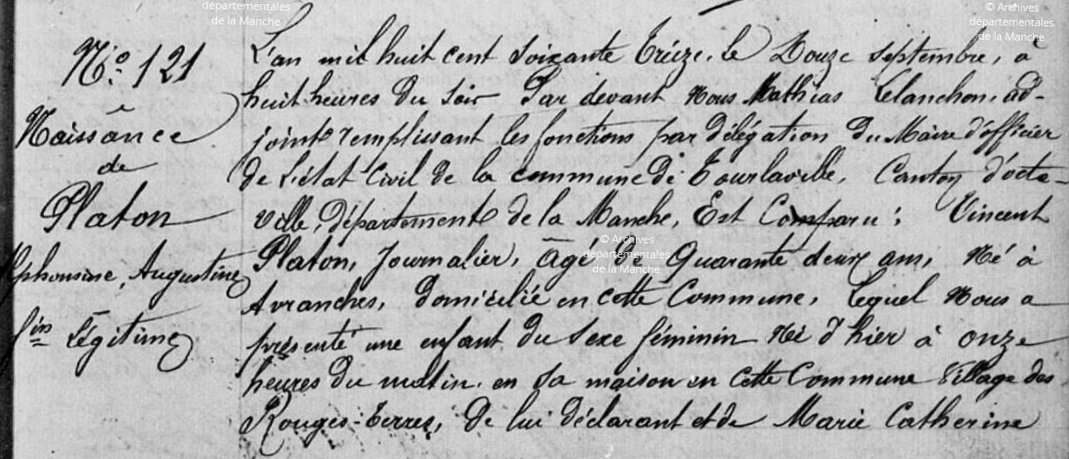 départementales
de la Manche
© Archives
départementales
de la Manche
N° 121
Naissance
de
Platon
Alphonsine, Augustine
fin Légitime
L'an mil huit cent soixante treize, le Douze septembre, à
huit heures du soir Par devant Nous Mathias Lelanchon, ad-
joint remplissant les fonctions par délégation du Maire d'officier
de l'état Civil de la commune de Tourlaville, Canton d'octe-
ville, Département de la Manche, Est Comparu : Vincent
Platon, Journalier, âgé de Quarante deux ans, Né à
Avranches, domicilié en cette Commune, lequel Nous a
présenté une enfant du sexe féminin Né d'hier à onze
heures du matin en sa maison en cette Commune Village des
Rouges-terres, de lui déclarant et de Marie Catherine
© Archives
départementales
de la Manche